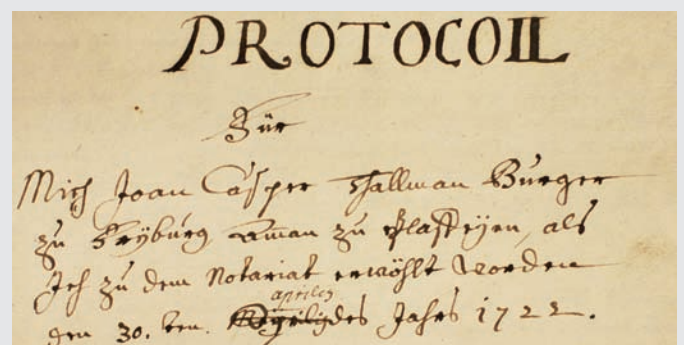 PROTOCOLL
Für
Mich Joan Casper Thalman Burger
zu Fryburg Aman zu Plaffeyen, als
Ich zu dem Notariat erwöhlt worden
den 30. ten. apriles des Jahrs 1722.